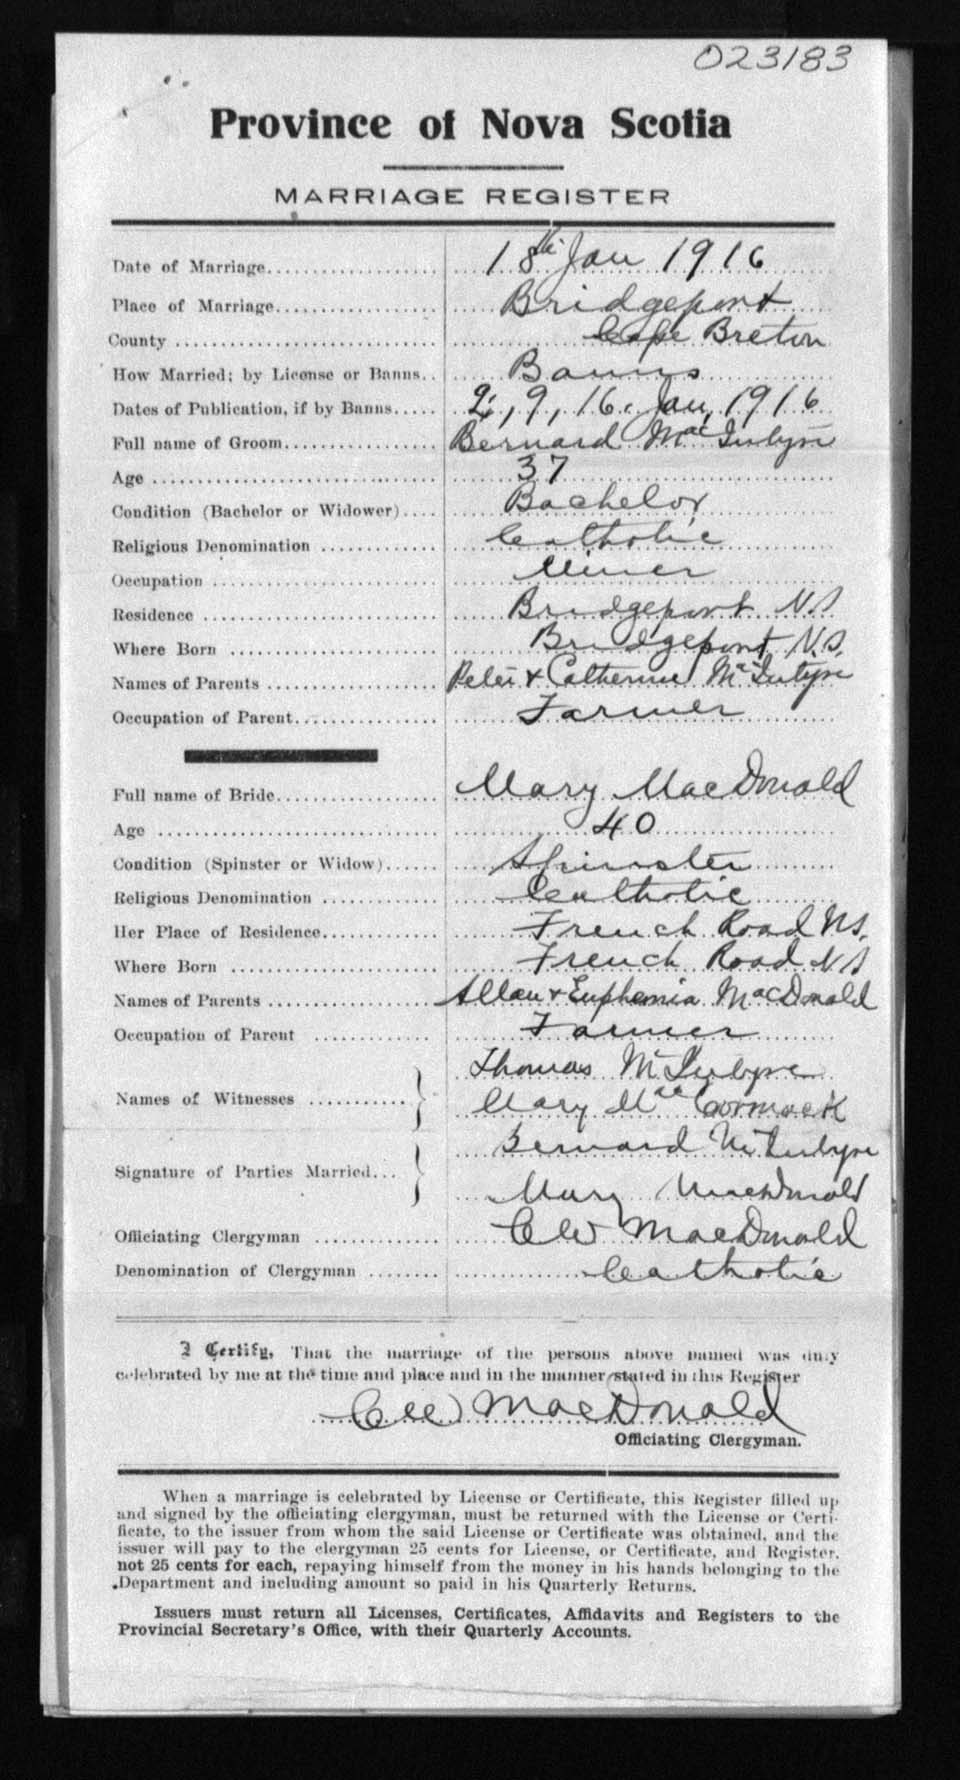 023183
Province of Nova Scotia
MARRIAGE REGISTER
Date of Marriage 18th Jan 1916
Place of Marriage Bridgeport
County Cape Breton
How Married; by License or Banns Banns
Dates of Publication, if by Banns 2, 9, 16, Jan, 1916
Full name of Groom Bernard MacIntyre
Age 37
Condition (Bachelor or Widower) Bachelor
Religious Denomination Catholic
Occupation Miner
Residence Bridgeport N.S
Where Born Bridgeport N.S.
Names of Parents Peter & Catherine McIntyre
Occupation of Parent Farmer
Full name of Bride Mary MacDonald
Age 40
Condition (Spinster or Widow) Spinster
Religious Denomination Catholic
Her Place of Residence French Road N.S.
Where Born French Road N S
Names of Parents Allan & Euphemia MacDonald
Occupation of Parent Farmer
Thomas McIntyre
Names of Witnesses Mary MacCormack
Bernard McIntyre
Signature of Parties Married
Mary MacDonald
Officiating Clergyman C W MacDonald
Denomination of Clergyman Catholic
I Certify, That the marriage of the persons above named was duly
celebrated by me at the time and place and in the manner stated in this Register
C W MacDonald
Officiating Clergyman.
When a marriage is celebrated by License or Certificate, this Register filled up
and signed by the officiating clergyman, must be returned with the License or Certi-
ficate, to the issuer from whom the said License or Certificate was obtained, and the
issuer will pay to the clergyman 25 cents for License, or Certificate, and Register,
not 25 cents for each, repaying himself from the money in his hands belonging to the
Department and including amount so paid in his Quarterly Returns.
Issuers must return all Licenses, Certificates, Affidavits and Registers to the
Provincial Secretary's Office, with their Quarterly Accounts.